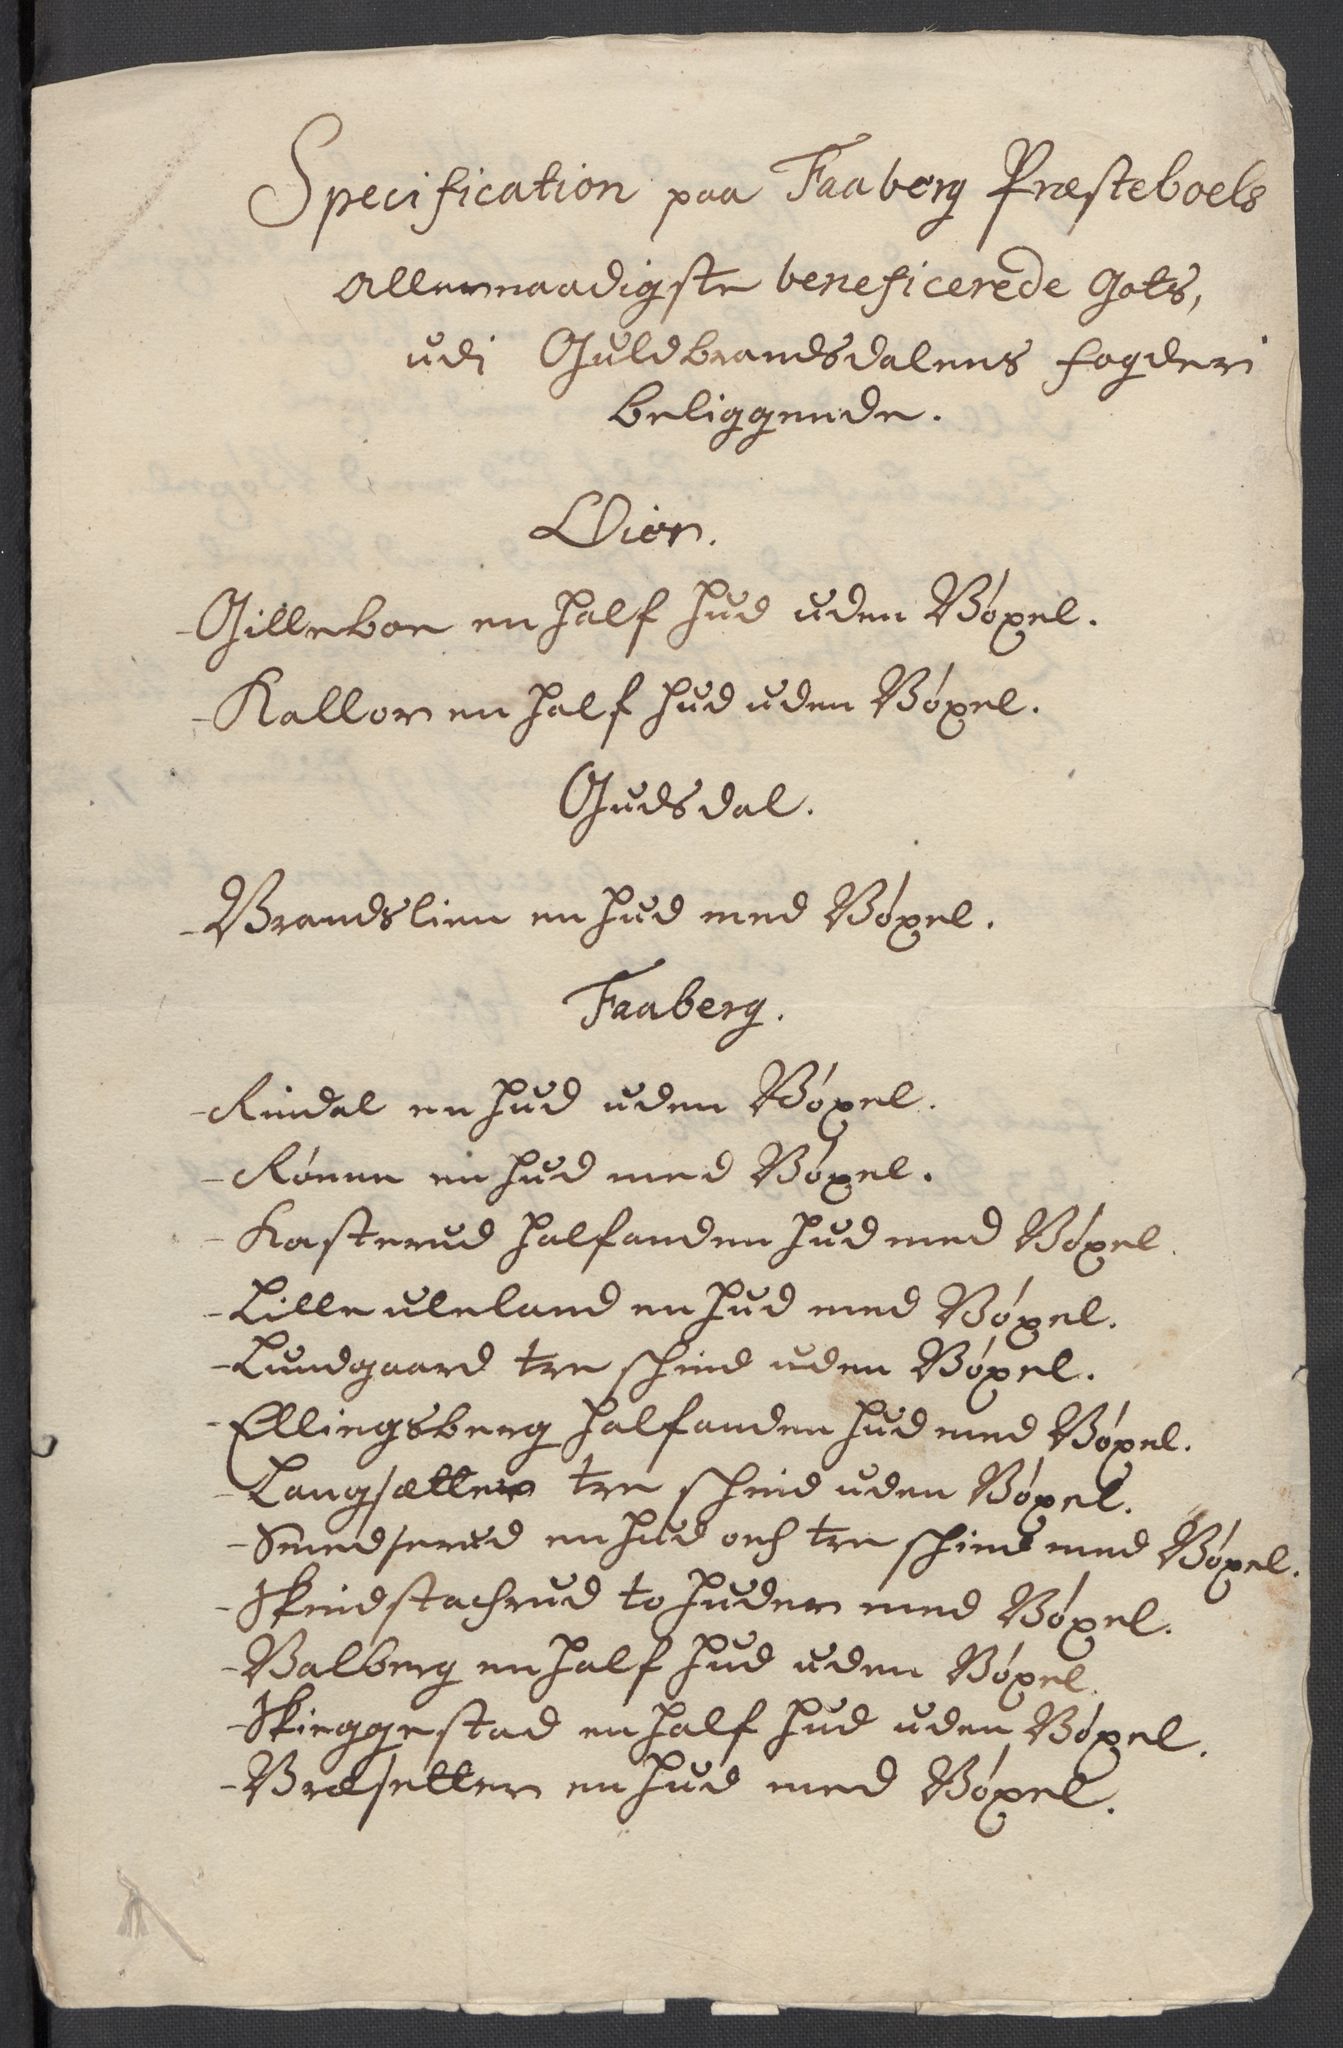 Specification paa Faaberg Præsteboels
allernaadigste beneficerede Gots,
udi Guldbrandsdalens fogderi
beliggende.
Öier.
- Gilleboe en half hud uden Bøxel.
- Kallor en half hud uden Bøxel.
Gudsdal.
- Brandslien en hud med Bøxel.
Faaberg.
- Rindal en hud uden Bøxel.
- Rønne en hud med Bøxel.
- Kasterud halfanden hud med Bøxel.
- Lille uleland en hud med Bøxel.
- Lundgaard tre schind uden Bøxel.
- Ellingsberg halfanden hud med Bøxel.
- Langsætter tre schind uden Bøxel.
- Smedserud en hud och tre schind med Bøxel.
- Skindstachrud to huder med Bøxel.
- Balberg en half hud uden Bøxel.
- Skieggestad en half hud uden Bøxel.
- Bræsetter en hud med Bøxel.